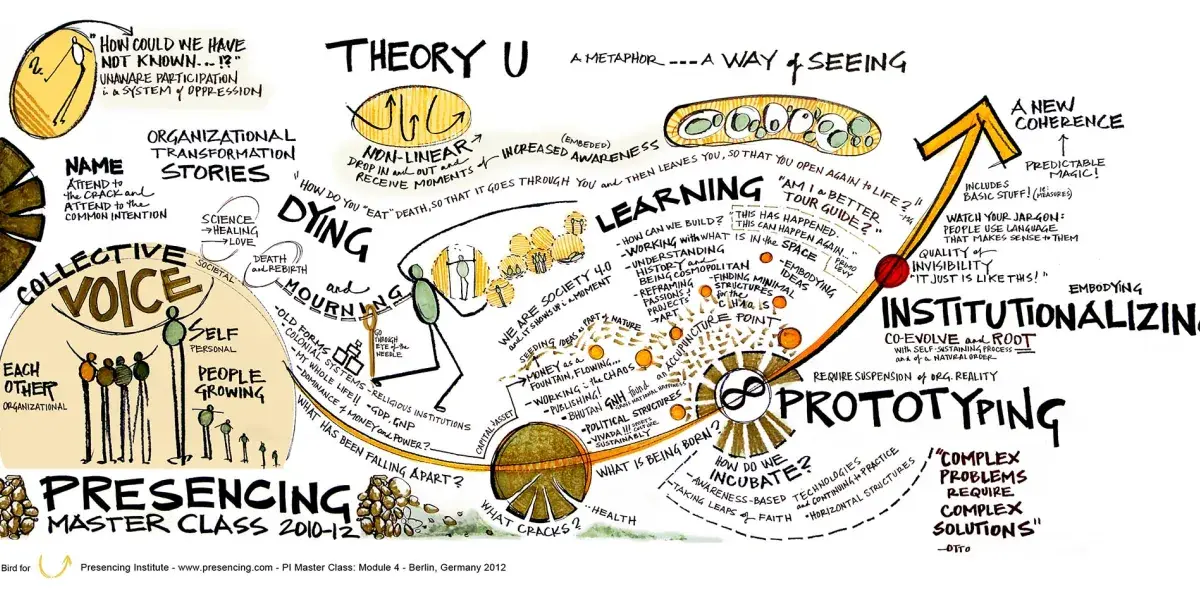 "HOW COULD WE HAVE
NOT KNOWN...!?"
UNAWARE PARTICIPATION
in a SYSTEM of OPPRESSION
THEORY U
A METAPHOR --- A WAY of SEEING
NAME
ATTEND to
the CRACK and
ATTEND to the
COMMON INTENTION
ORGANIZATIONAL
TRANSFORMATION
STORIES
NON-LINEAR
DROP IN and OUT and
RECEIVE MOMENTS of INCREASED AWARENESS
(EMBEDED)
"HOW DO YOU "EAT" DEATH, SO THAT IT GOES THROUGH YOU and THEN LEAVES YOU, SO THAT YOU OPEN AGAIN to LIFE?"
SCIENCE
→HEALING
→LOVE
SOCIETAL
DEATH
and REBIRTH
DYING
and
MOURNING
COLLECTIVE
VOICE
SELF
PERSONAL
EACH
OTHER
ORGANIZATIONAL
PEOPLE
GROWING
-OLD FORMS
-COLONIAL SYSTEMS
-MY WHOLE LIFE!!
-DOMINANCE of MONEY and POWER?
-RELIGIOUS INSTITUTIONS
-GDP, GNP
GO
THROUGH
EYE of the
NEEDLE
WHAT HAS BEEN FALLING APART?
CAPITAL ASSET
WHAT CRACKS?
-HEALTH
LEARNING
"AM I a BETTER
TOUR GUIDE?"
-HOW CAN WE BUILD?
-WORKING with WHAT IS IN the SPACE
-UNDERSTANDING
HISTORY and
BEING COSMOPOLITAN
-REFRAMING
PASSIONS &
PROJECTS
-ART
"THIS HAS HAPPENED.
THIS CAN HAPPEN AGAIN..."
PRIMO
LEVI
-EMBODYING
IDEAS
-FINDING MINIMAL
STRUCTURES
for the
CHAOS
WE ARE SOCIETY 4.0
and IT SHOWS UP in a MOMENT
SEEDING IDEAS as PART of NATURE
-MONEY as a
FOUNTAIN, FLOWING...
-WORKING in the CHAOS
-PUBLISHING!
-BHUTAN GNH found
GROSS NATIONAL HAPPINESS
an ACCUPUNCTURE POINT
-POLITICAL STRUCTURES
SUSTAINABLY
WHAT IS BEING BORN?
HOW DO WE
INCUBATE?
-AWARENESS-BASED TECHNOLOGIES
and CONTINUING to PRACTICE
-TAKING LEAPS of FAITH
•HORIZONTAL STRUCTURES
PROTOTYPING
REQUIRE SUSPENSION of ORG. REALITY
EMBODYING
INSTITUTIONALIZING
CO-EVOLVE and ROOT
WITH SELF-SUSTAINING PROCESS
and of a NATURAL ORDER
A NEW
COHERENCE
PREDICTABLE
MAGIC!
INCLUDES
BASIC STUFF!
WATCH YOUR JARGON:
PEOPLE USE LANGUAGE
THAT MAKES SENSE to THEM
QUALITY of
INVISIBILITY
"IT JUST IS LIKE THIS!"
"COMPLEX
PROBLEMS
REQUIRE
COMPLEX
SOLUTIONS"
-OTTO
PRESENCING
MASTER CLASS 2010-12
Bird for
Presencing Institute - www.presencing.com - PI Master Class: Module 4 - Berlin, Germany 2012